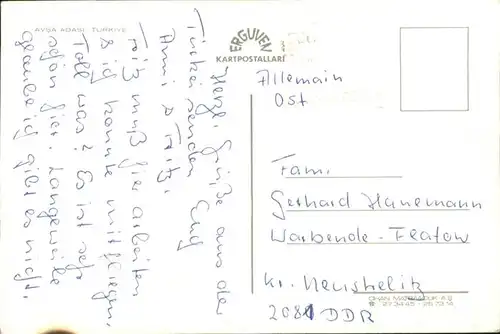 AVŞA ADASI TÜRKİYE
ERGÜVEN
KARTPOSTALLARI
Herzl. Grüße aus der
Türkei senden Euch
Anni & Fritz.
Fritz muß hier arbeiten
& ich konnte mitfliegen.
Toll was? Es ist sehr
schön hier. Langeweile
glaube ich gibt es nicht.
Allemain
Ost
Fam.
Gerhard Hanemann
Warbende - Flatow
Kr. Neustrelitz
2081 DDR